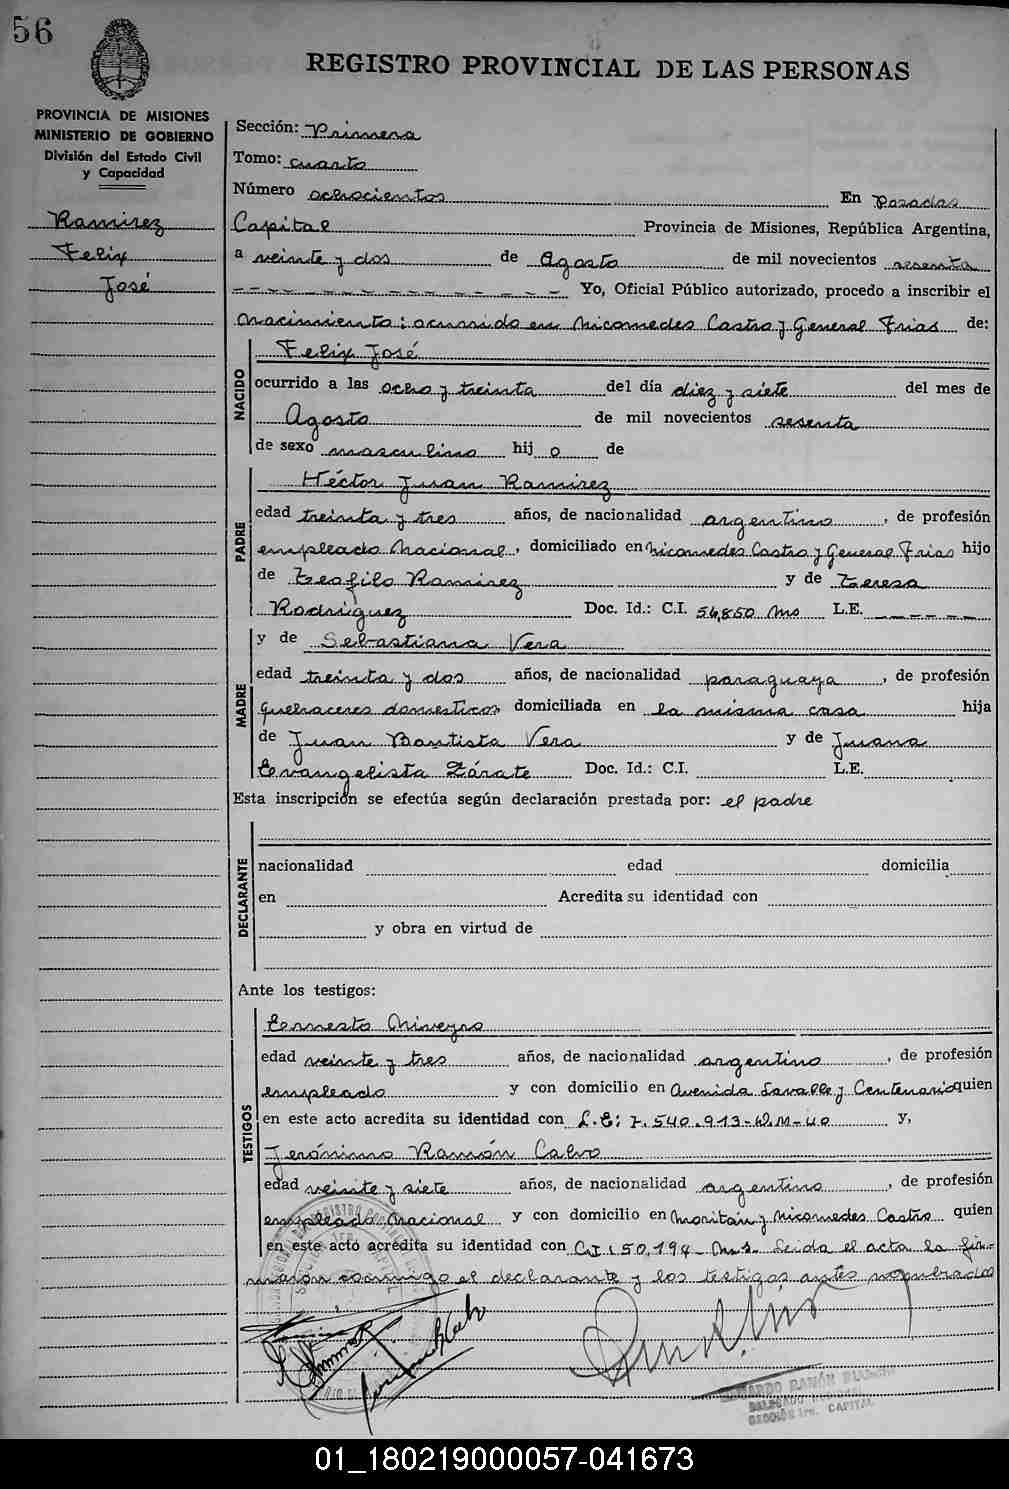 56
REGISTRO PROVINCIAL DE LAS PERSONAS
PROVINCIA DE MISIONES
MINISTERIO DE GOBIERNO
División del Estado Civil
y Capacidad
Ramirez
Felix
José
Sección: Primera
Tomo: cuarto
Número ochocientos En Posadas
Capital Provincia de Misiones, República Argentina,
a veinte y dos de Agosto de mil novecientos sesenta
Yo, Oficial Público autorizado, procedo a inscribir el
Nacimiento: ocurrido en Nicomedes Castro y General Frias de:
NACIDO
Felix José
ocurrido a las ocho y treinta del día diez y siete del mes de
Agosto de mil novecientos sesenta
de sexo masculino hijo de
PADRE
Héctor Juan Ramirez
edad treinta y tres años, de nacionalidad argentino, de profesión
empleado Nacional, domiciliado en Nicomedes Castro y General Frias hijo
de Teofilo Ramirez y de Teresa
Rodriguez Doc. Id.: C.I. 56,850 Mns L.E. -----
y de Sebastiana Vera
MADRE
edad treinta y dos años, de nacionalidad paraguaya, de profesión
quehaceres domesticos domiciliada en la misma casa hija
de Juan Bautista Vera y de Juana
Evangelista Zárate Doc. Id.: C.I. L.E.
Esta inscripción se efectúa según declaración prestada por: el padre
DECLARANTE
nacionalidad edad domicilia
en Acredita su identidad con
y obra en virtud de
Ante los testigos:
TESTIGOS
Ernesto
edad veinte y tres años, de nacionalidad argentino, de profesión
empleado y con domicilio en Avenida Lavalle y Centenario quien
en este acto acredita su identidad con L.E: 7.540.913-D.M-40 y,
Jerónimo Ramón Calvo
edad veinte y siete años, de nacionalidad argentino, de profesión
empleado Nacional y con domicilio en Moritan y Nicomedes Castro quien
en este acto acredita su identidad con C.I: 50,194 - Mns. Leida el acta la fir-
maron conmigo el declarante y los testigos antes nombrados
RAMÓN
SECCIÓN 1ra. CAPITAL
01_180219000057-041673